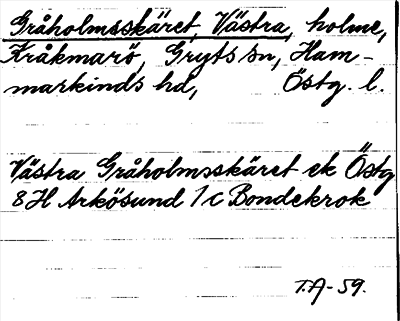 Gråholmsskäret, Västra, holme,
Kråkmarö, Gryts sn, Ham-
markinds hd, Östg. l.
Västra Gråholmsskäret ek Östg
8H Arkösund 1 c Bondekrok
T.A-59.